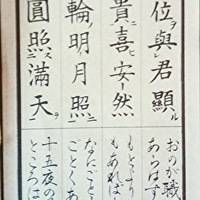 位與君顯
貴喜安然
輪明月照
圓照滿天
おのが職
あらはす
もとより
もあれば
なにごと
ごとくあ
十五夜の
ところは